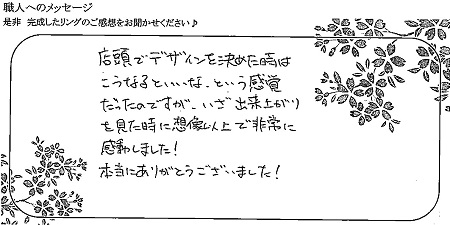 職人へのメッセージ
是非 完成したリングのご感想をお聞かせください♪
店頭でデザインを決めた時は
こうなるといいな、という感覚
だったのですが、いざ出来上がり
を見た時に想像以上で非常に
感動しました!
本当にありがとうございました!